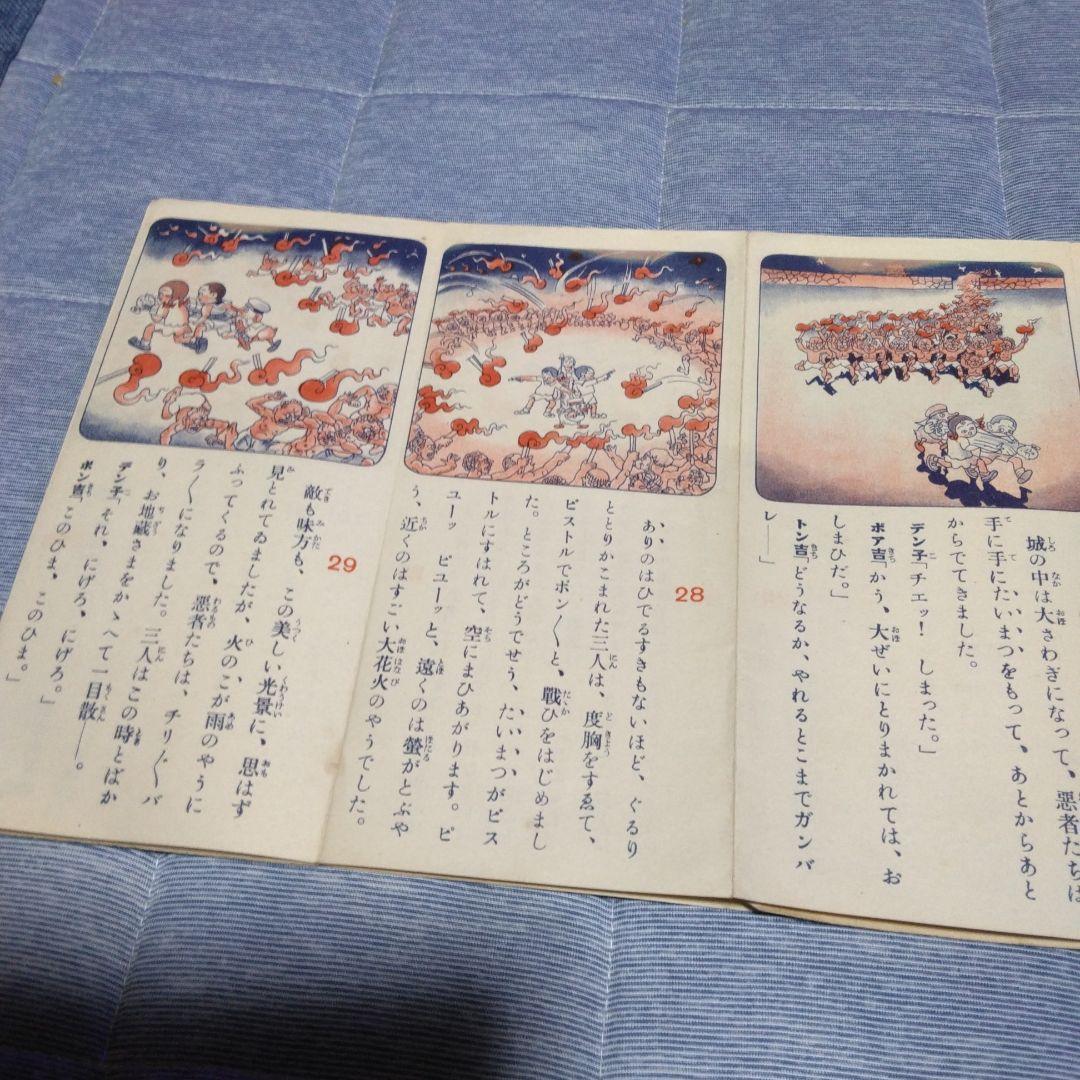 城の中は大さわぎになって、悪者たちは
手に手にたいまつをもって、あとからあと
からでてきました。
デン子「チエッ！ しまった。」
ポア吉「かう、大ぜいにとりまかれては、お
しまひだ。」
トン吉「どうなるか、やれるとこまでガンバ
レ――」
28
ありのはひでるすきもないほど、ぐるり
ととりかこまれた三人は、度胸をすゑて、
ピストルでポン〱と、戰ひをはじめまし
た。ところがどうでせう、たいまつがピス
トルにすはれて、空にまひあがります。ピ
ユーッ ピユーッと、遠くのは螢がとぶや
う、近くのはすごい大花火のやうでした。
29
敵も味方も、この美しい光景に、思はず
見とれてゐましたが、火のこが雨のやうに
ふってくるので、悪者たちは、チリ〲バ
ラ〱になりました。三人はこの時とばか
り、お地蔵さまをかゝへて一目散――。
デン子「それ、にげろ、にげろ。」
ポン吉「このひま、このひま。」